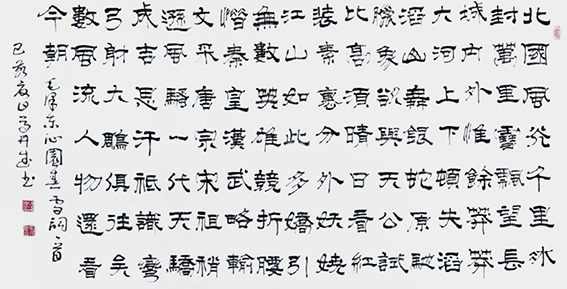 北國風光千里冰
封萬里雪飄望長
城內外惟餘莽莽
大河上下頓失滔
滔山舞銀蛇原馳
臘象欲與天公試
比高須晴日看紅
裝素裹分外妖嬈
江山如此多嬌引
無數英雄競折腰
惜秦皇漢武略輸
文采唐宗宋祖稍
遜風騷一代天驕
成吉思汗祇識彎
弓射大鵰俱往矣
數風流人物還看
今朝
毛澤東沁園春雪詞一首
己亥夏日書